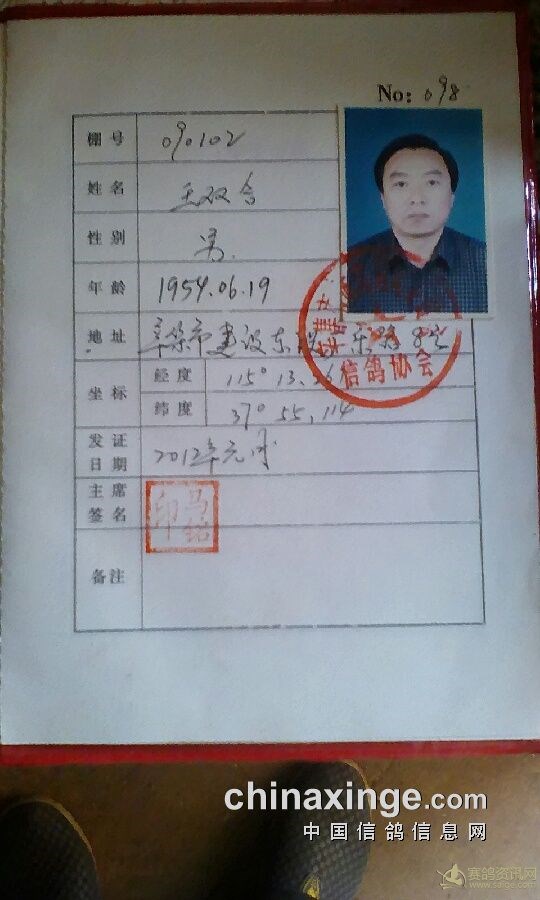 No: 098
棚号 090102
姓名 王双合
性别 男.
年龄 1954.06.19
地址 辛集市建设东路
信鸽协会
坐标 经度 115° 13, 36
纬度 37° 55, 114
发证日期 2012年元月
主席签名
印
备注
chinaxinge.com
中国信鸽信息网
赛鸽资讯网
www.saige.com